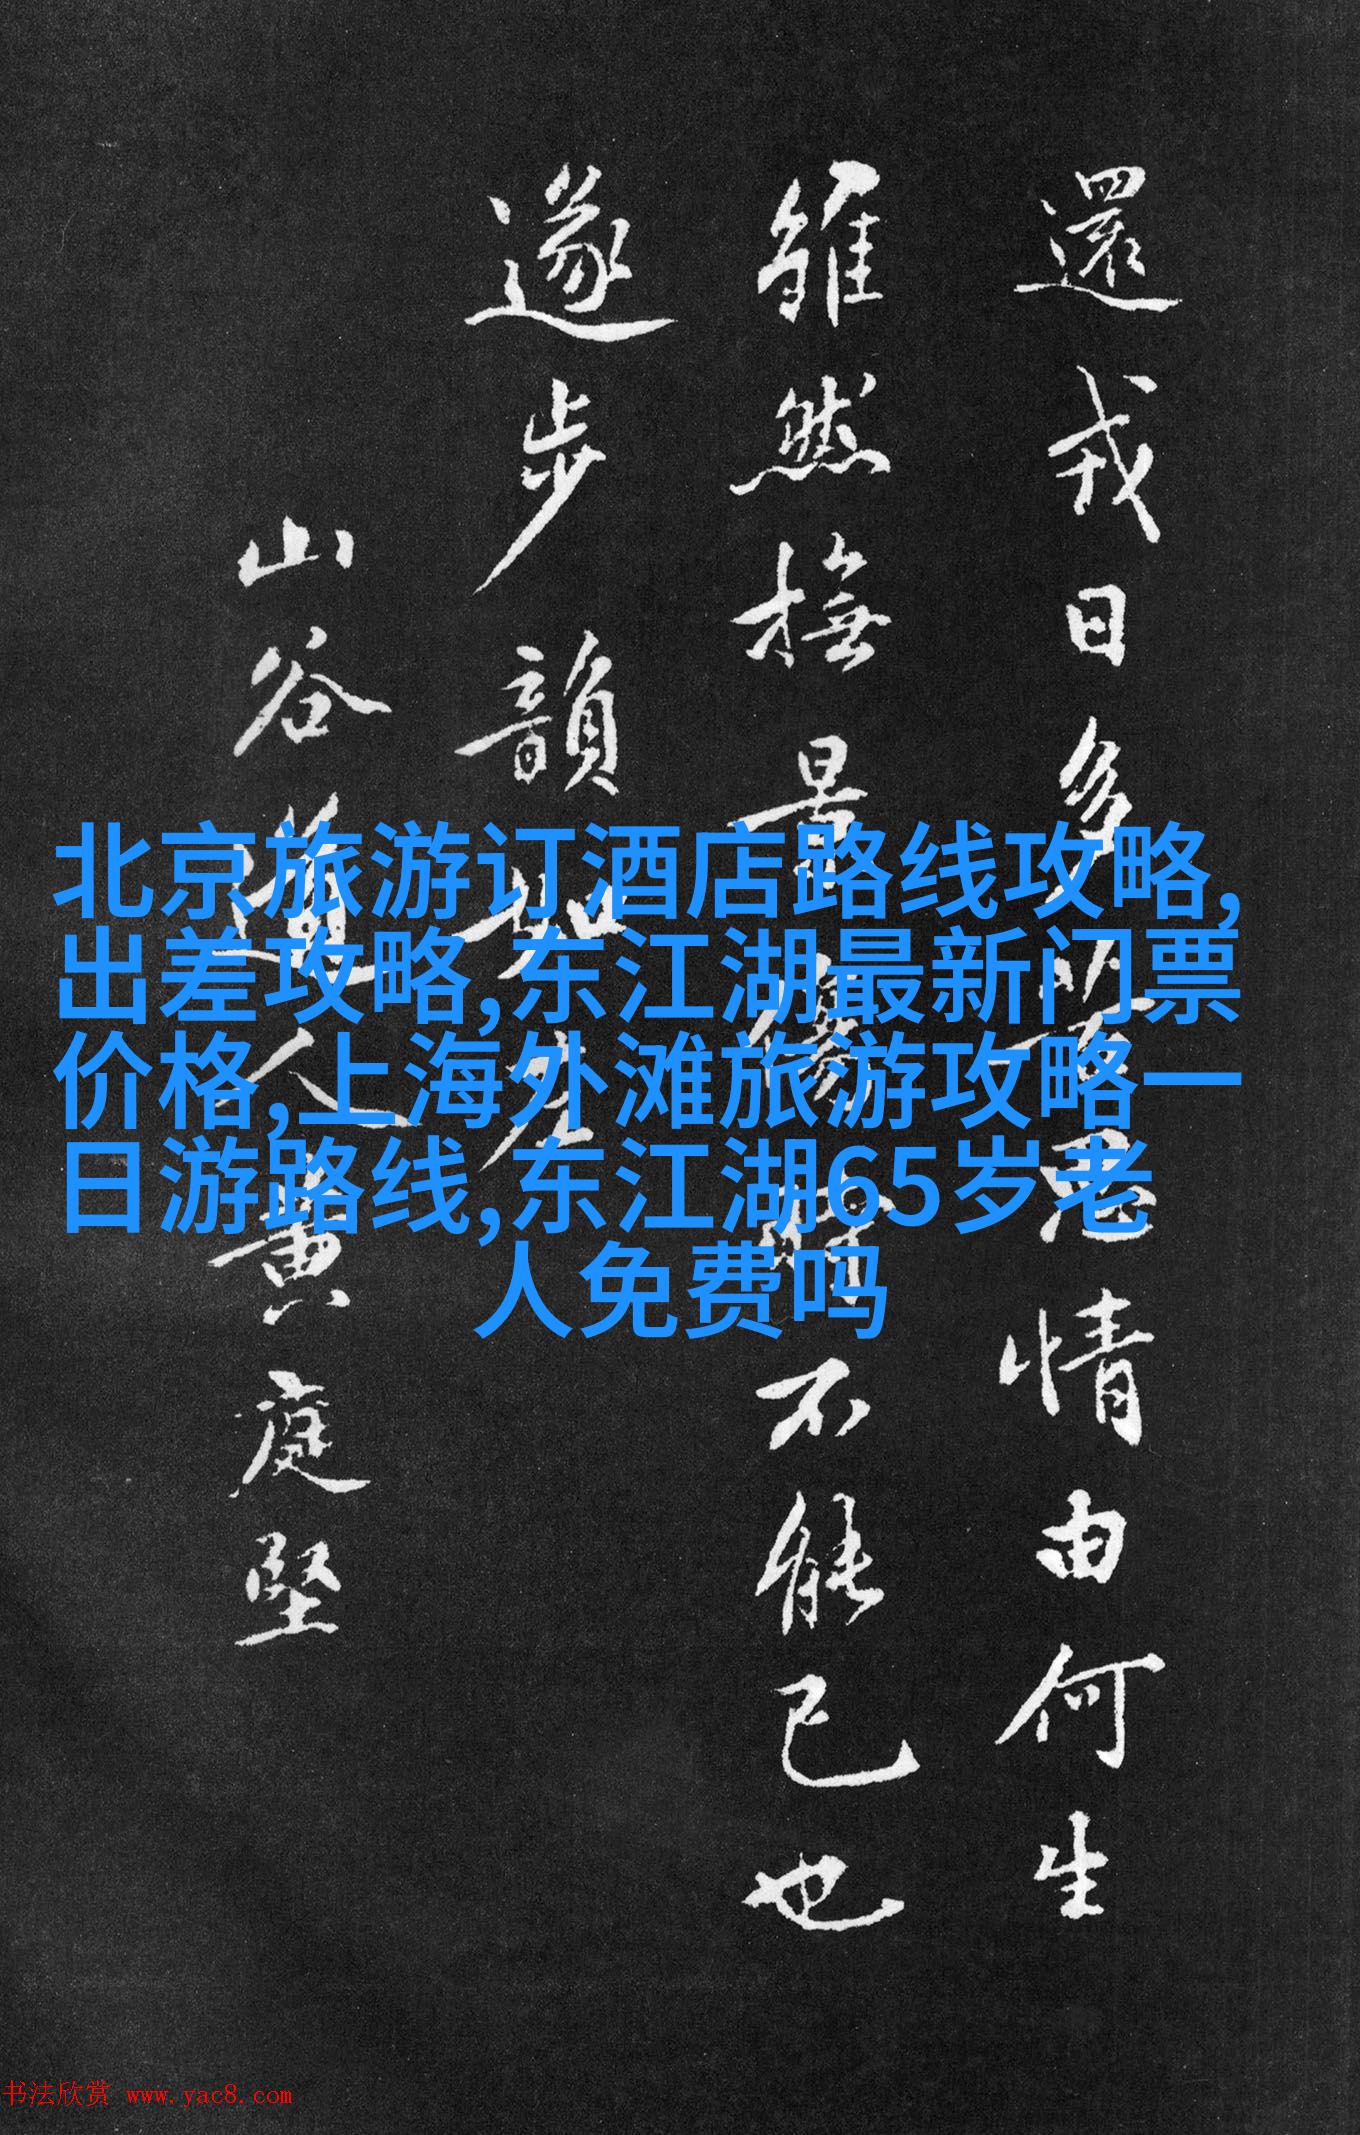 還戎日多所
情由何生
雖然撫景
不能已也
遂步韻如左
山谷道人黄庭堅
北京旅游订酒店路线攻略,
出差攻略,东江湖最新门票
价格,上海外滩旅游攻略一
日游路线,东江湖65岁老
人免费吗
书法欣赏 www.yac8.com